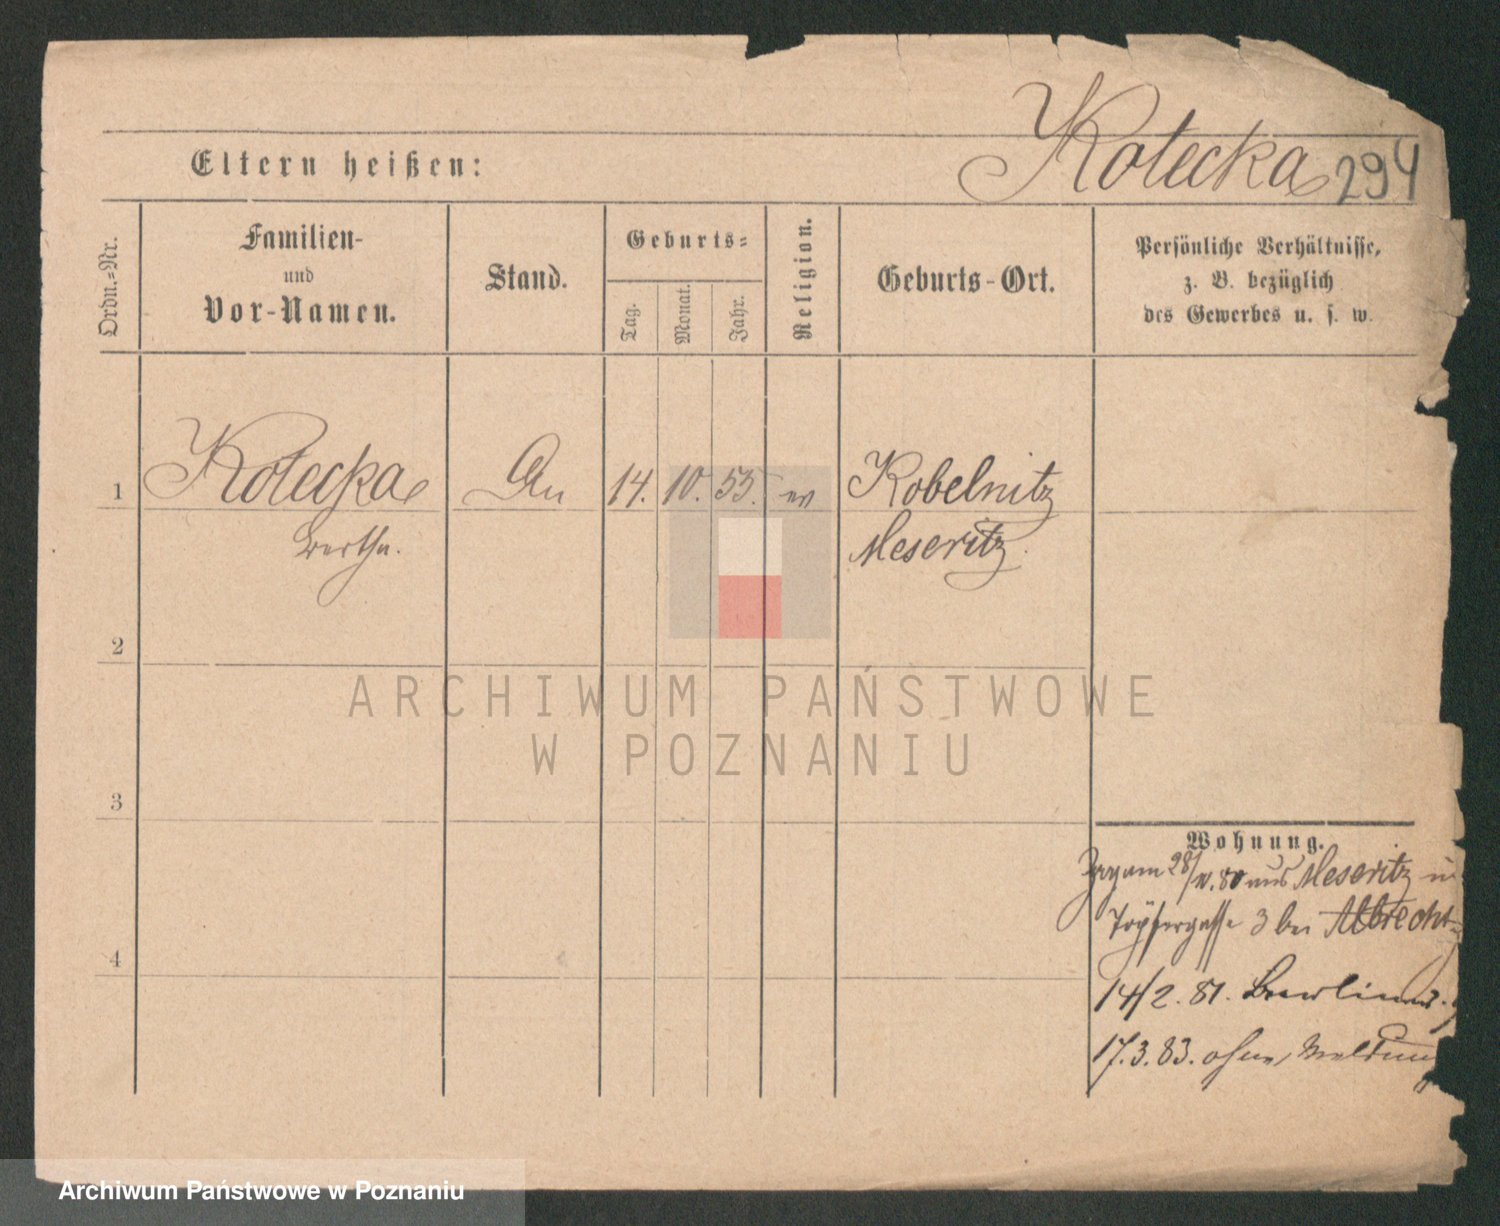 Kotecka 294
Eltern heißen:
Ordn.-Nr.
Familien-
und
Vor-Namen.
Stand.
Geburts-
Tag.
Monat.
Jahr.
Religion.
Geburts-Ort.
Persönliche Verhältnisse,
z. B. bezüglich
des Gewerbes u. s. w.
1 Kotecka 14. 10. 55. ev Kobelnitz
Bertha. Meseritz.
2
3
4
ARCHIWUM PAŃSTWOWE
W POZNANIU
Wohnung.
Zugang 28/ .80 aus Meseritz
Töpfergasse 3 bei Albrecht
14/2. 81.
17.3.83. ohne Meldung
Archiwum Państwowe w Poznaniu